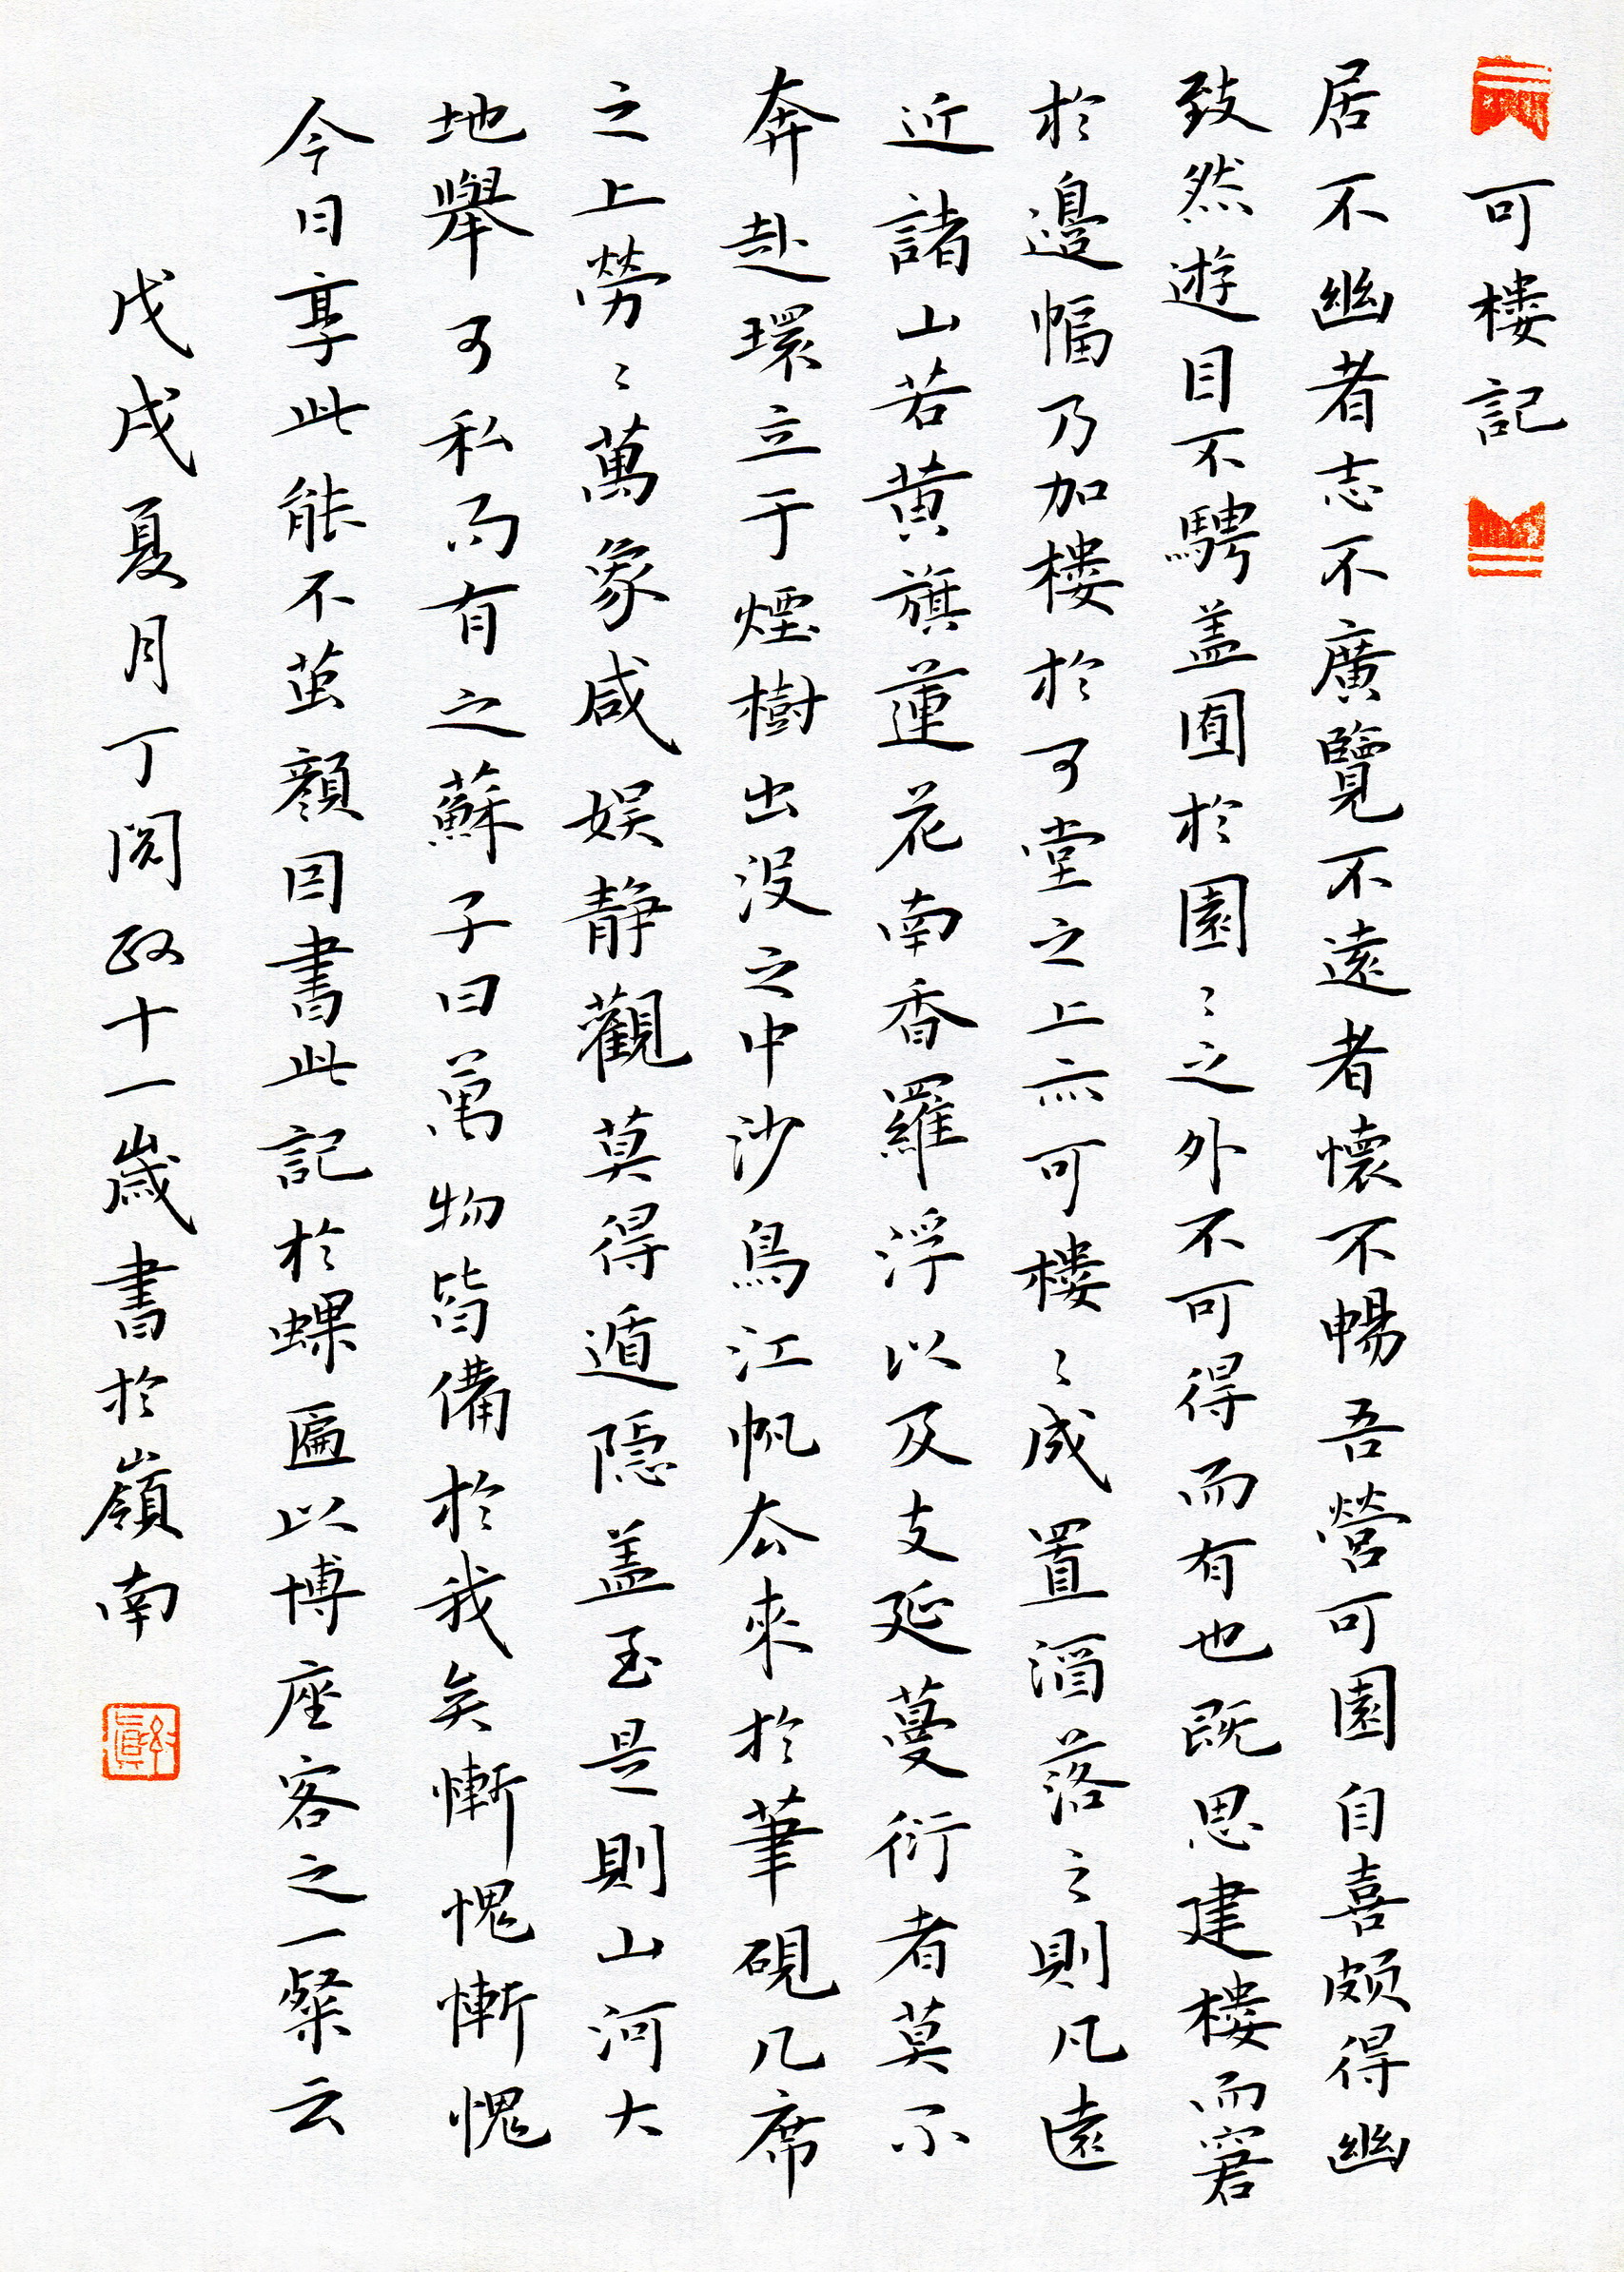 可樓記
居不幽者志不廣覽不遠者懷不暢吾營可園自喜頗得幽
致然遊目不騁盖囿於園〻之外不可得而有也既思建樓而窘
於邊幅乃加樓於可堂之上亦可樓〻成置酒落之則凡遠
近諸山若黄旗蓮花南香羅浮以及支延蔓衍者莫不
奔赴環立于煙樹出没之中沙鳥江帆去來於筆硯几席
之上勞〻萬象咸娱静觀莫得遁隱盖至是則山河大
地舉可私而有之蘇子曰萬物皆備於我矣慚愧慚愧
今日享此能不茧顔因書此記於蜾匾以博座客之一粲云
戊戌夏月丁閲政十一歲書於嶺南